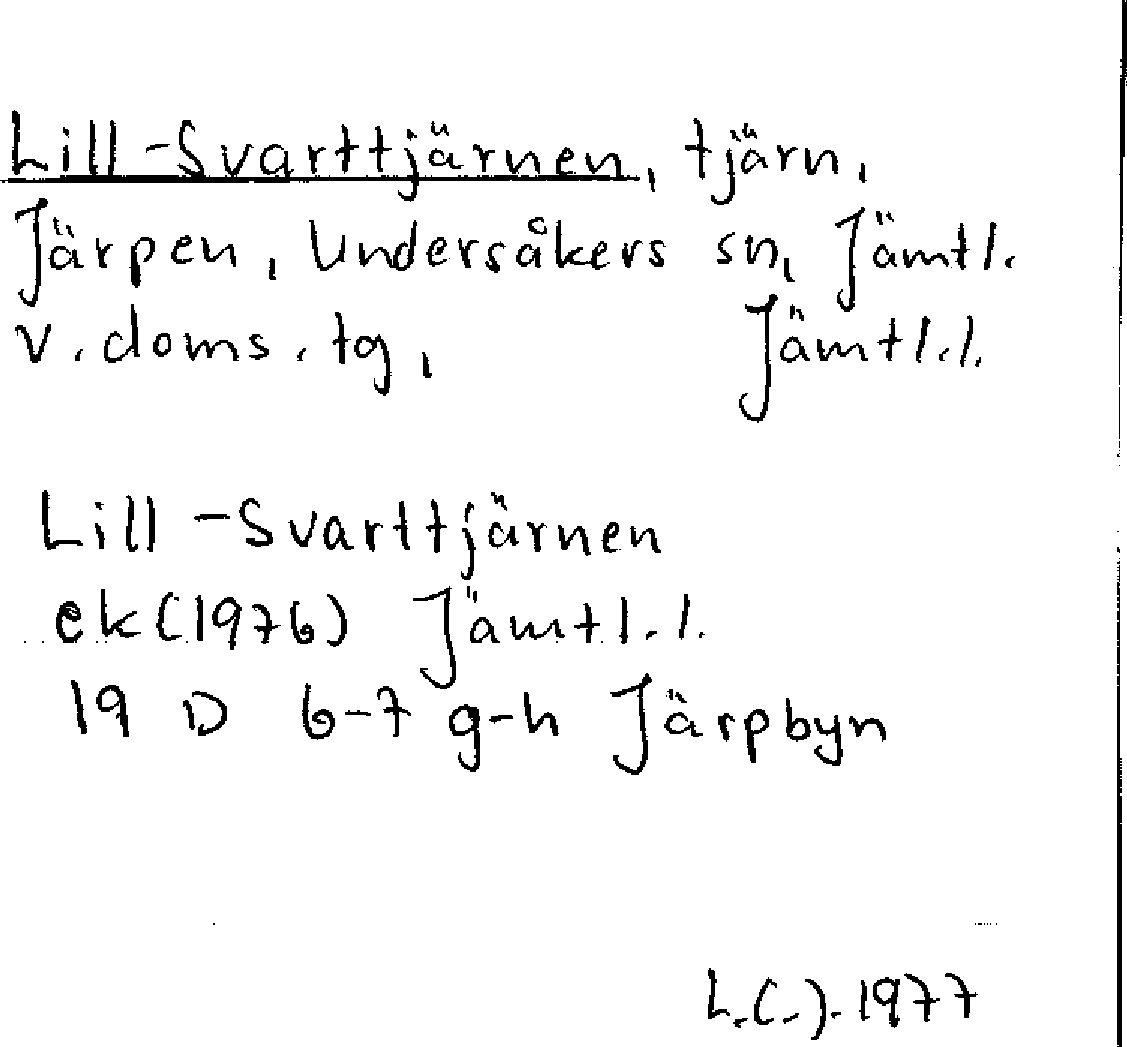 Lill-Svarttjärnen, tjärn,
Järpen, Undersåkers sn, Jämtl.
v. doms. tg, Jämtl.l.
Lill-Svarttjärnen
ek (1976) Jämtl.l.
19 D 6-7 g-h Järpbyn
L.C.J. 1977